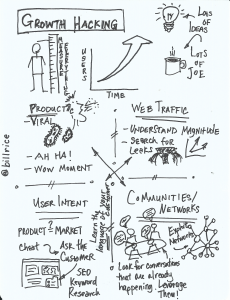 GROWTH HACKING
MEASURE
EVERYTHING
USERS
TIME
LOTS OF
IDEAS
LOTS OF
JOE
PRODUCT
VIRAL
- AH HA!
- WOW MOMENT
WEB TRAFFIC
- UNDERSTAND MAGNITUDE
- SEARCH FOR
LEAKS
Learn the
language of your
customer
USER INTENT
PRODUCT ? MARKET
cheat
Ask the
CUSTOMER
SEO
Keyword
Research
COMMUNITIES/
NETWORKS
Exploit
Networks
- Look for conversations
that are already
happening. Leverage
Them!
@billrice